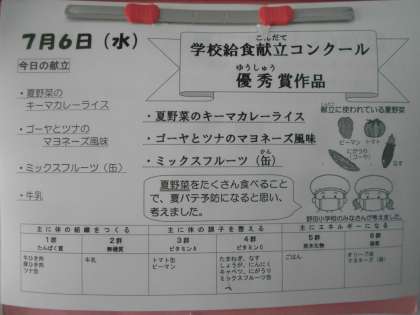 7月6日（水）
今日の献立
・夏野菜の
キーマカレーライス
・ゴーヤとツナの
マヨネーズ風味
・ミックスフルーツ（缶）
・牛乳
こんだて
学校給食献立コンクール
ゆうしゅう
優秀賞作品
・夏野菜のキーマカレーライス
・ゴーヤとツナのマヨネーズ風味
かん
・ミックスフルーツ（缶）
献立に使われている夏野菜
ピーマン トマト
にがうり
（ゴーヤ）
なす
夏野菜をたくさん食べること
で、夏バテ予防になると思い、
考えました。
野田小学校のみなさんが考えました。
主に体の組織をつくる 主に体の調子を整える 主にエネルギーになる
1群 2群 3群 4群 5群 6群
たんぱく質 無機質 ビタミンA ビタミンC 炭水化物 脂質
牛ひき肉 牛乳 トマト缶 たまねぎ、なす ごはん オリーブ油
豚ひき肉 ピーマン しょうが、にんにく マヨネーズ
ツナ缶 キャベツ、にがうり
ミックスフルーツ缶